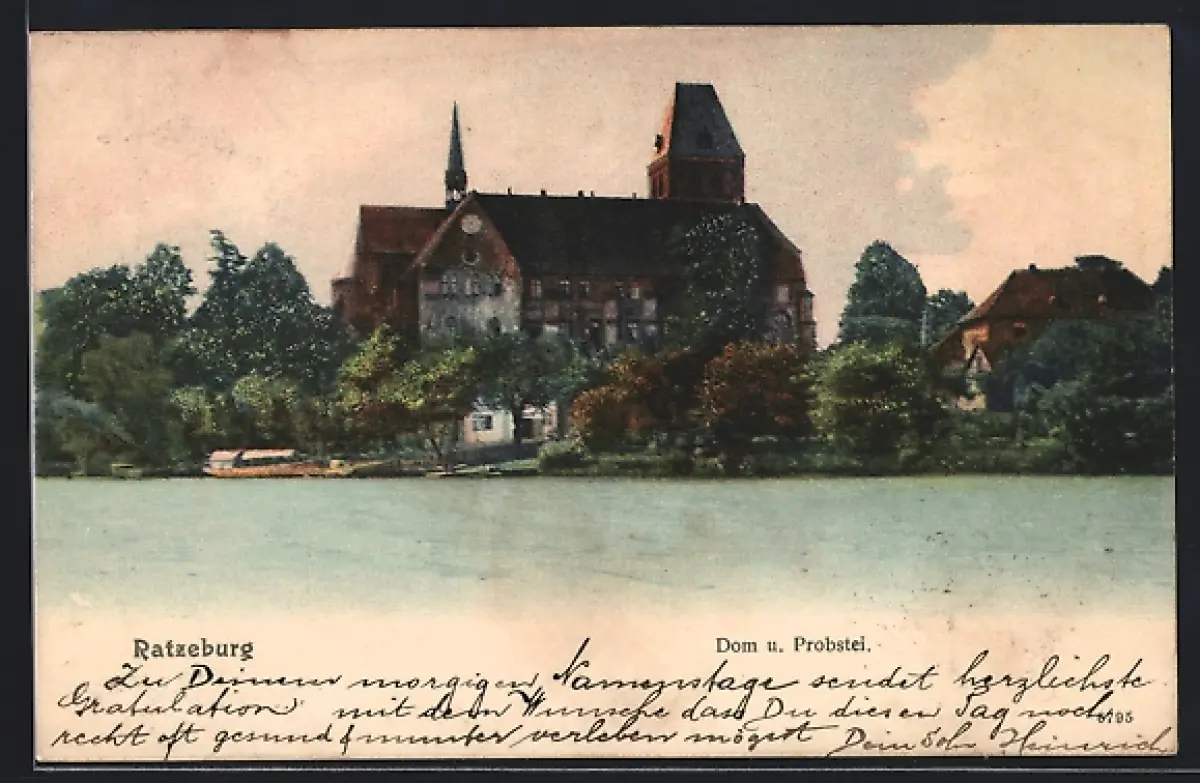 Ratzeburg
Dom u. Probstei.
Zu Deinem morgigen Namenstage sendet herzlichste
Gratulation mit dem Wunsche das Du diesen Tag noch
recht oft gesund & munter verleben mögest Dein Sohn Heinrich